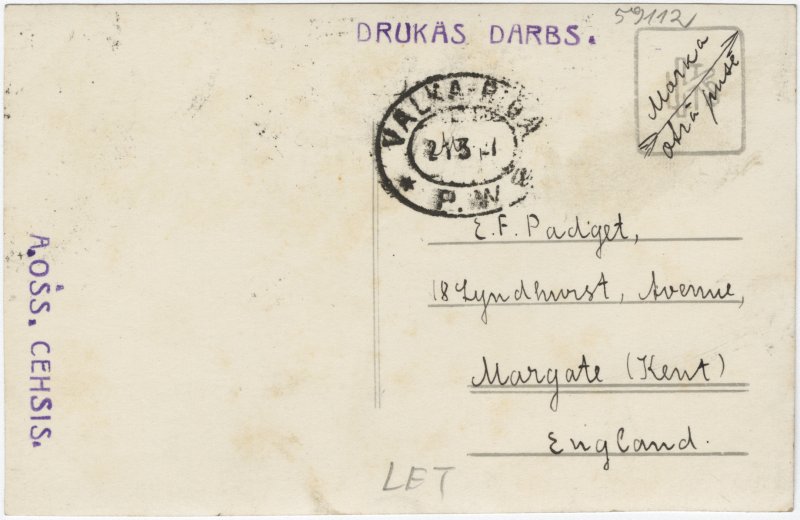 59112
DRUKĀS DARBS.
Marka
otrā pusē
VALKA-RIGA
213 1
P.W
E. F. Padiget,
18 Lyndhurst, Avenue,
Margate (Kent)
England.
A.OSS. CEHSIS.
LET